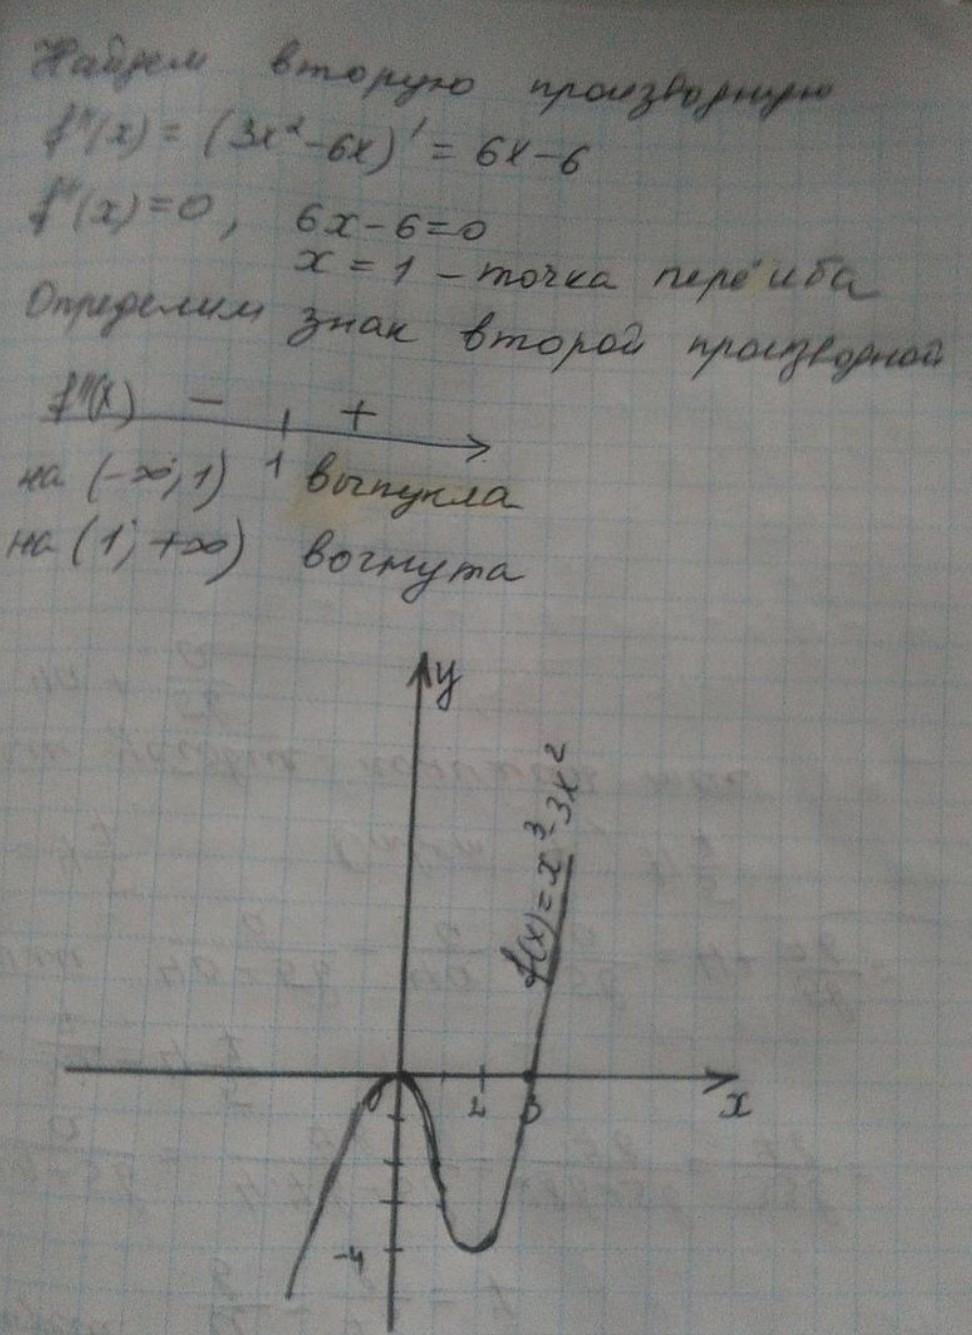 Найдем вторую производную
f''(x) = (3x² - 6x)' = 6x - 6
f''(x) = 0, 6x - 6 = 0
x = 1 - точка перегиба
Определим знак второй производной
f''(x) - +
1
на (-∞; 1) выпукла
на (1; +∞) вогнута
y
f(x) = x³ - 3x²
0 2 3 x
-4